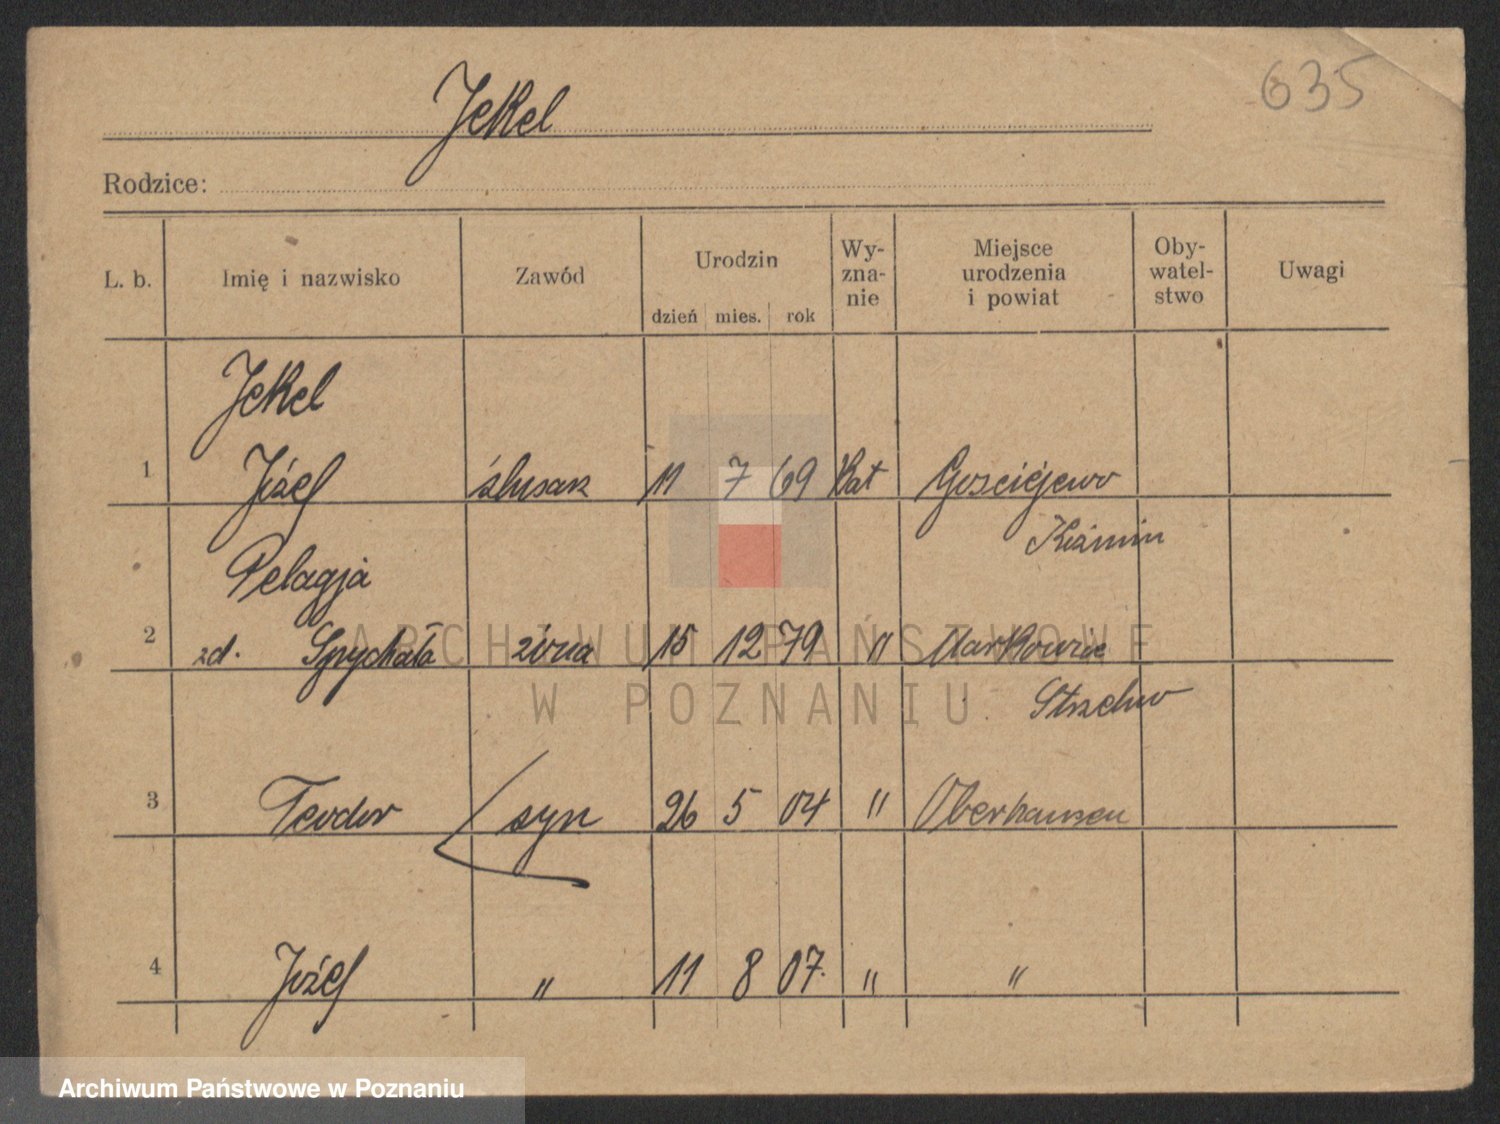 635
Jekel
Rodzice:
L. b. Imię i nazwisko Zawód Urodzin dzień mies. rok Wy-zna-nie Miejsce urodzenia i powiat Oby-watel-stwo Uwagi
Jekel
1 Józef ślusarz 11 7 69 Kat Gościejewo
Koźmin
Pelagja
2 zd. Spychała żona 15 12 79 " Markowice
Strzelno
3 Teodor syn 26 5 04 " Oberhausen
4 Józef " 11 8 07. " "
ARCHIWUM PAŃSTWOWE
W POZNANIU
Archiwum Państwowe w Poznaniu